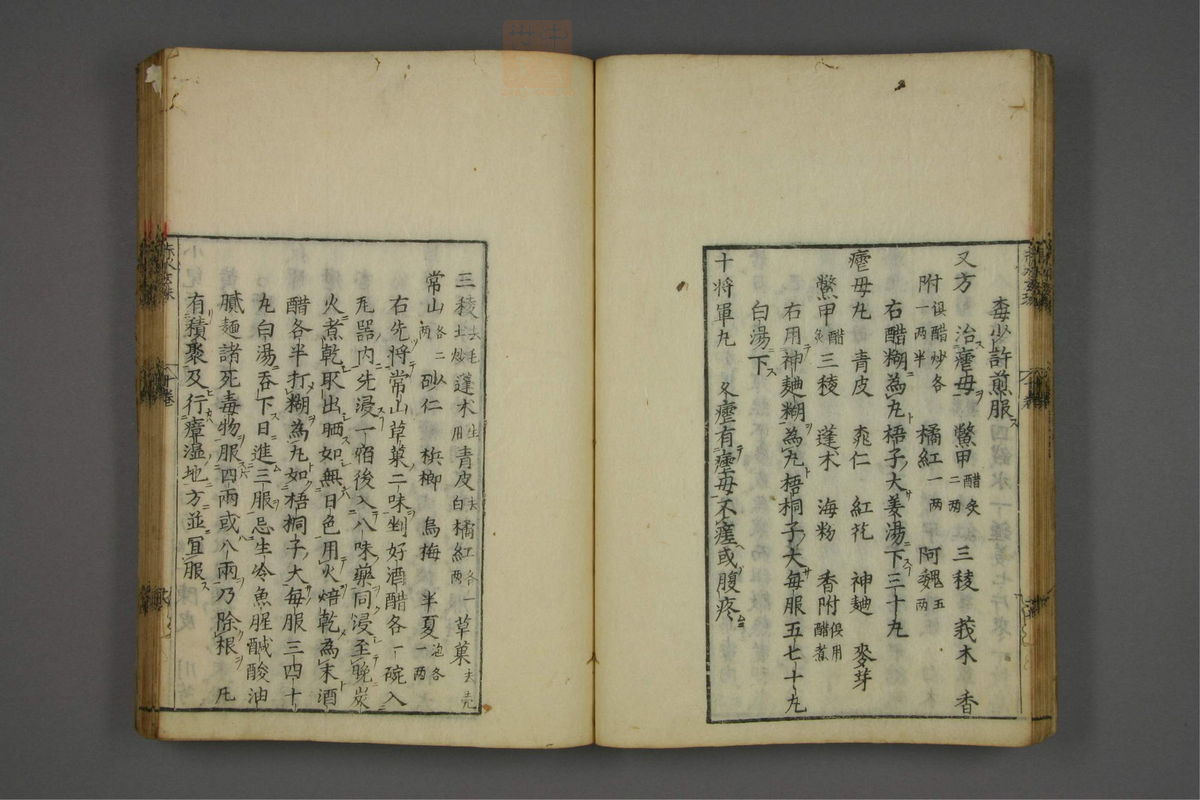 毒少許煎服
又方　治瘧母　鱉甲醋炙二两　三稜　莪术　香
附俱醋炒各一两半　橘紅一两　阿魏五两
右醋糊為丸梧子大姜湯下三十丸
瘧母丸　青皮　桃仁　紅花　神麯　麥芽
鱉甲醋炙　三稜　蓬术　海粉　香附俱用醋煮
右用神麯糊為丸梧桐子大每服五七十丸
白湯下
十将軍丸　久瘧有瘧母不痊或腹疼
三稜去毛土炒　蓬术生用　青皮去白　橘紅各一两　草菓去壳
常山各二两　砂仁　梹榔　烏梅　半夏泡各一两
右先将常山草菓二味剉好酒醋各一碗入
瓦器内先浸一宿後入八味藥同浸至晚炭
火煮乾取出晒如無日色用火焙乾為末酒
醋各半打糊為丸如梧桐子大每服三四十
丸白湯吞下日進三服忌生冷魚腥鹹酸油
膩麺諸死毒物服四兩或八兩乃除根　凡
有積聚及行瘴溫地方並宜服